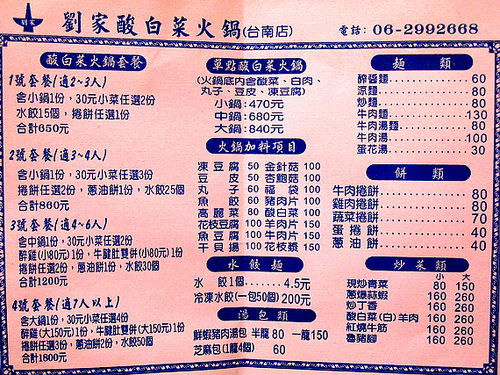 劉家酸白菜火鍋(台南店)
電話：06-2992668
酸白菜火鍋套餐
1號套餐(適2~3人)
含小鍋1份，30元小菜任選2份
水餃15個，捲餅任選1份
合計650元
2號套餐(適3~4人)
含小鍋1份，30元小菜任選3份
捲餅任選2份，蔥油餅1份，水餃25個
合計860元
3號套餐(適4~6人)
含中鍋1份，30元小菜任選2份
醉雞(小80元)1份，牛腱肚雙併(小80元)1份
捲餅任選2份，蔥油餅1份，水餃30個
合計1200元
4號套餐(適7人以上)
含大鍋1份，30元小菜任選4份
醉雞(大150元)1份，牛腱肚雙併(大150元)1份
捲餅任選3份，蔥油餅2份，水餃50個
合計1800元
單點酸白菜火鍋
(火鍋底內含酸菜、白肉、
丸子、豆皮、凍豆腐)
小鍋:470元
中鍋:680元
大鍋:840元
火鍋加料項目
凍豆腐 50 金針菇 100
豆皮 50 杏鮑菇 100
丸子 60 福袋 100
魚餃 60 豬肉片 100
高麗菜 80 酸白菜 100
花枝豆腐 100 羊肉片 150
魚豆腐 100 牛肉片 150
干貝揚 100 花枝漿 150
水餃麵
水餃1個.......4.5元
冷凍水餃(一包50個)200元
湯包類
鮮蝦豬肉湯包 半籠 80 一籠 150
芝麻包(1籠4個) 60
麵類
醡醬麵 60
涼麵 80
炒麵 80
牛肉麵 130
牛肉湯麵 80
牛肉湯 100
蛋花湯 30
餅類
牛肉捲餅 80
雞肉捲餅 80
蔬菜捲餅 70
蛋捲餅 40
蔥油餅 40
炒菜類
小 大
現炒青菜 80 150
蔥爆蒜蝦 160 260
炒丁香 160 260
酸白菜(白)羊肉 160 260
紅燒牛筋 160 260
魯豬腳 160 260